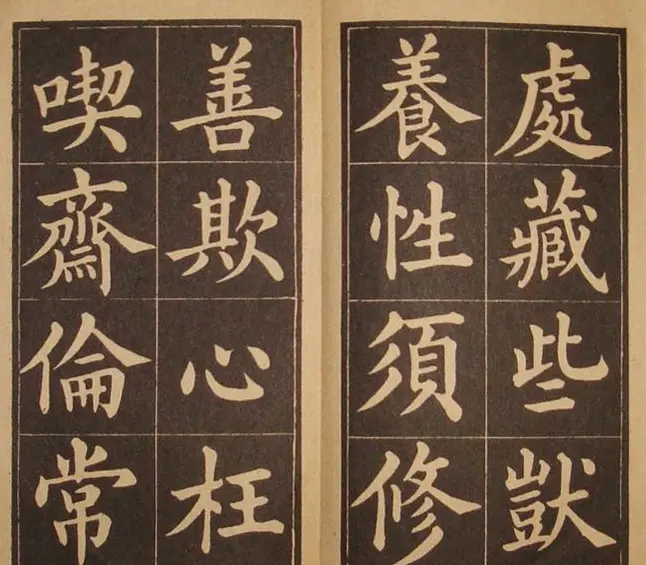 處藏些獃
養性須修
善欺心枉
喫齋倫常